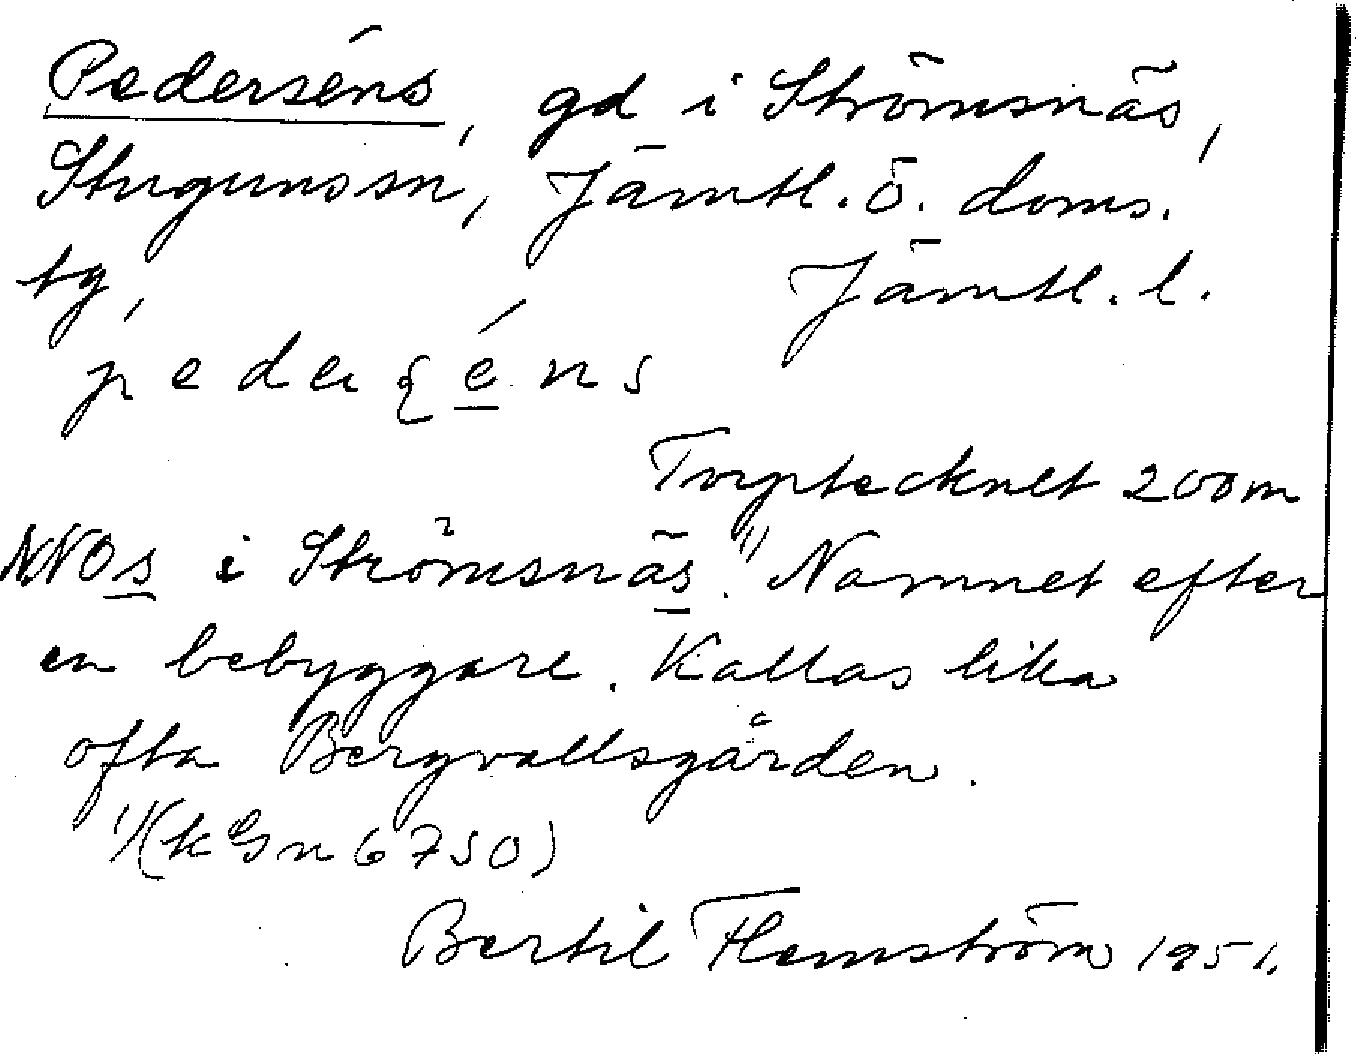 Pederséns, gd i Strömsnäs,
Stuguns sn, Jämtl. ö. doms.
tg, Jämtl. l.
pedeʂéns
Torptecknet 200 m
NNO s i Strömsnäs.¹⁾ Namnet efter
en bebyggare. Kallas lika
ofta Bergvallsgården.
¹⁾(k Gn 6750)
Bertil Flemström 1951.